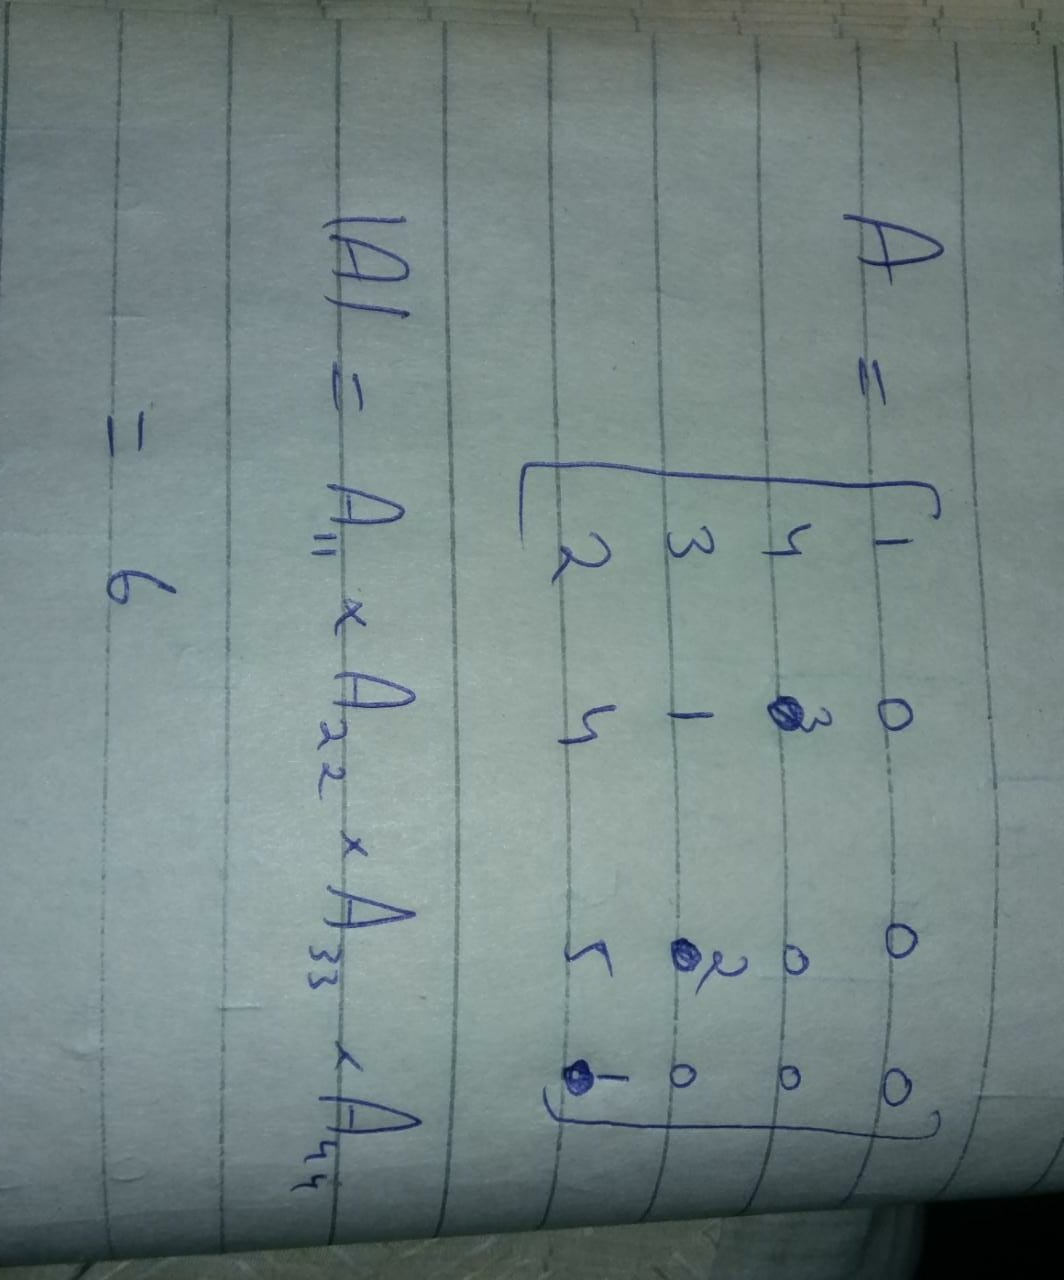 A = [ 1 0 0 0
4 3 0 0
3 1 2 0
2 4 5 1 ]
|A| = A₁₁ × A₂₂ × A₃₃ × A₄₄
= 6